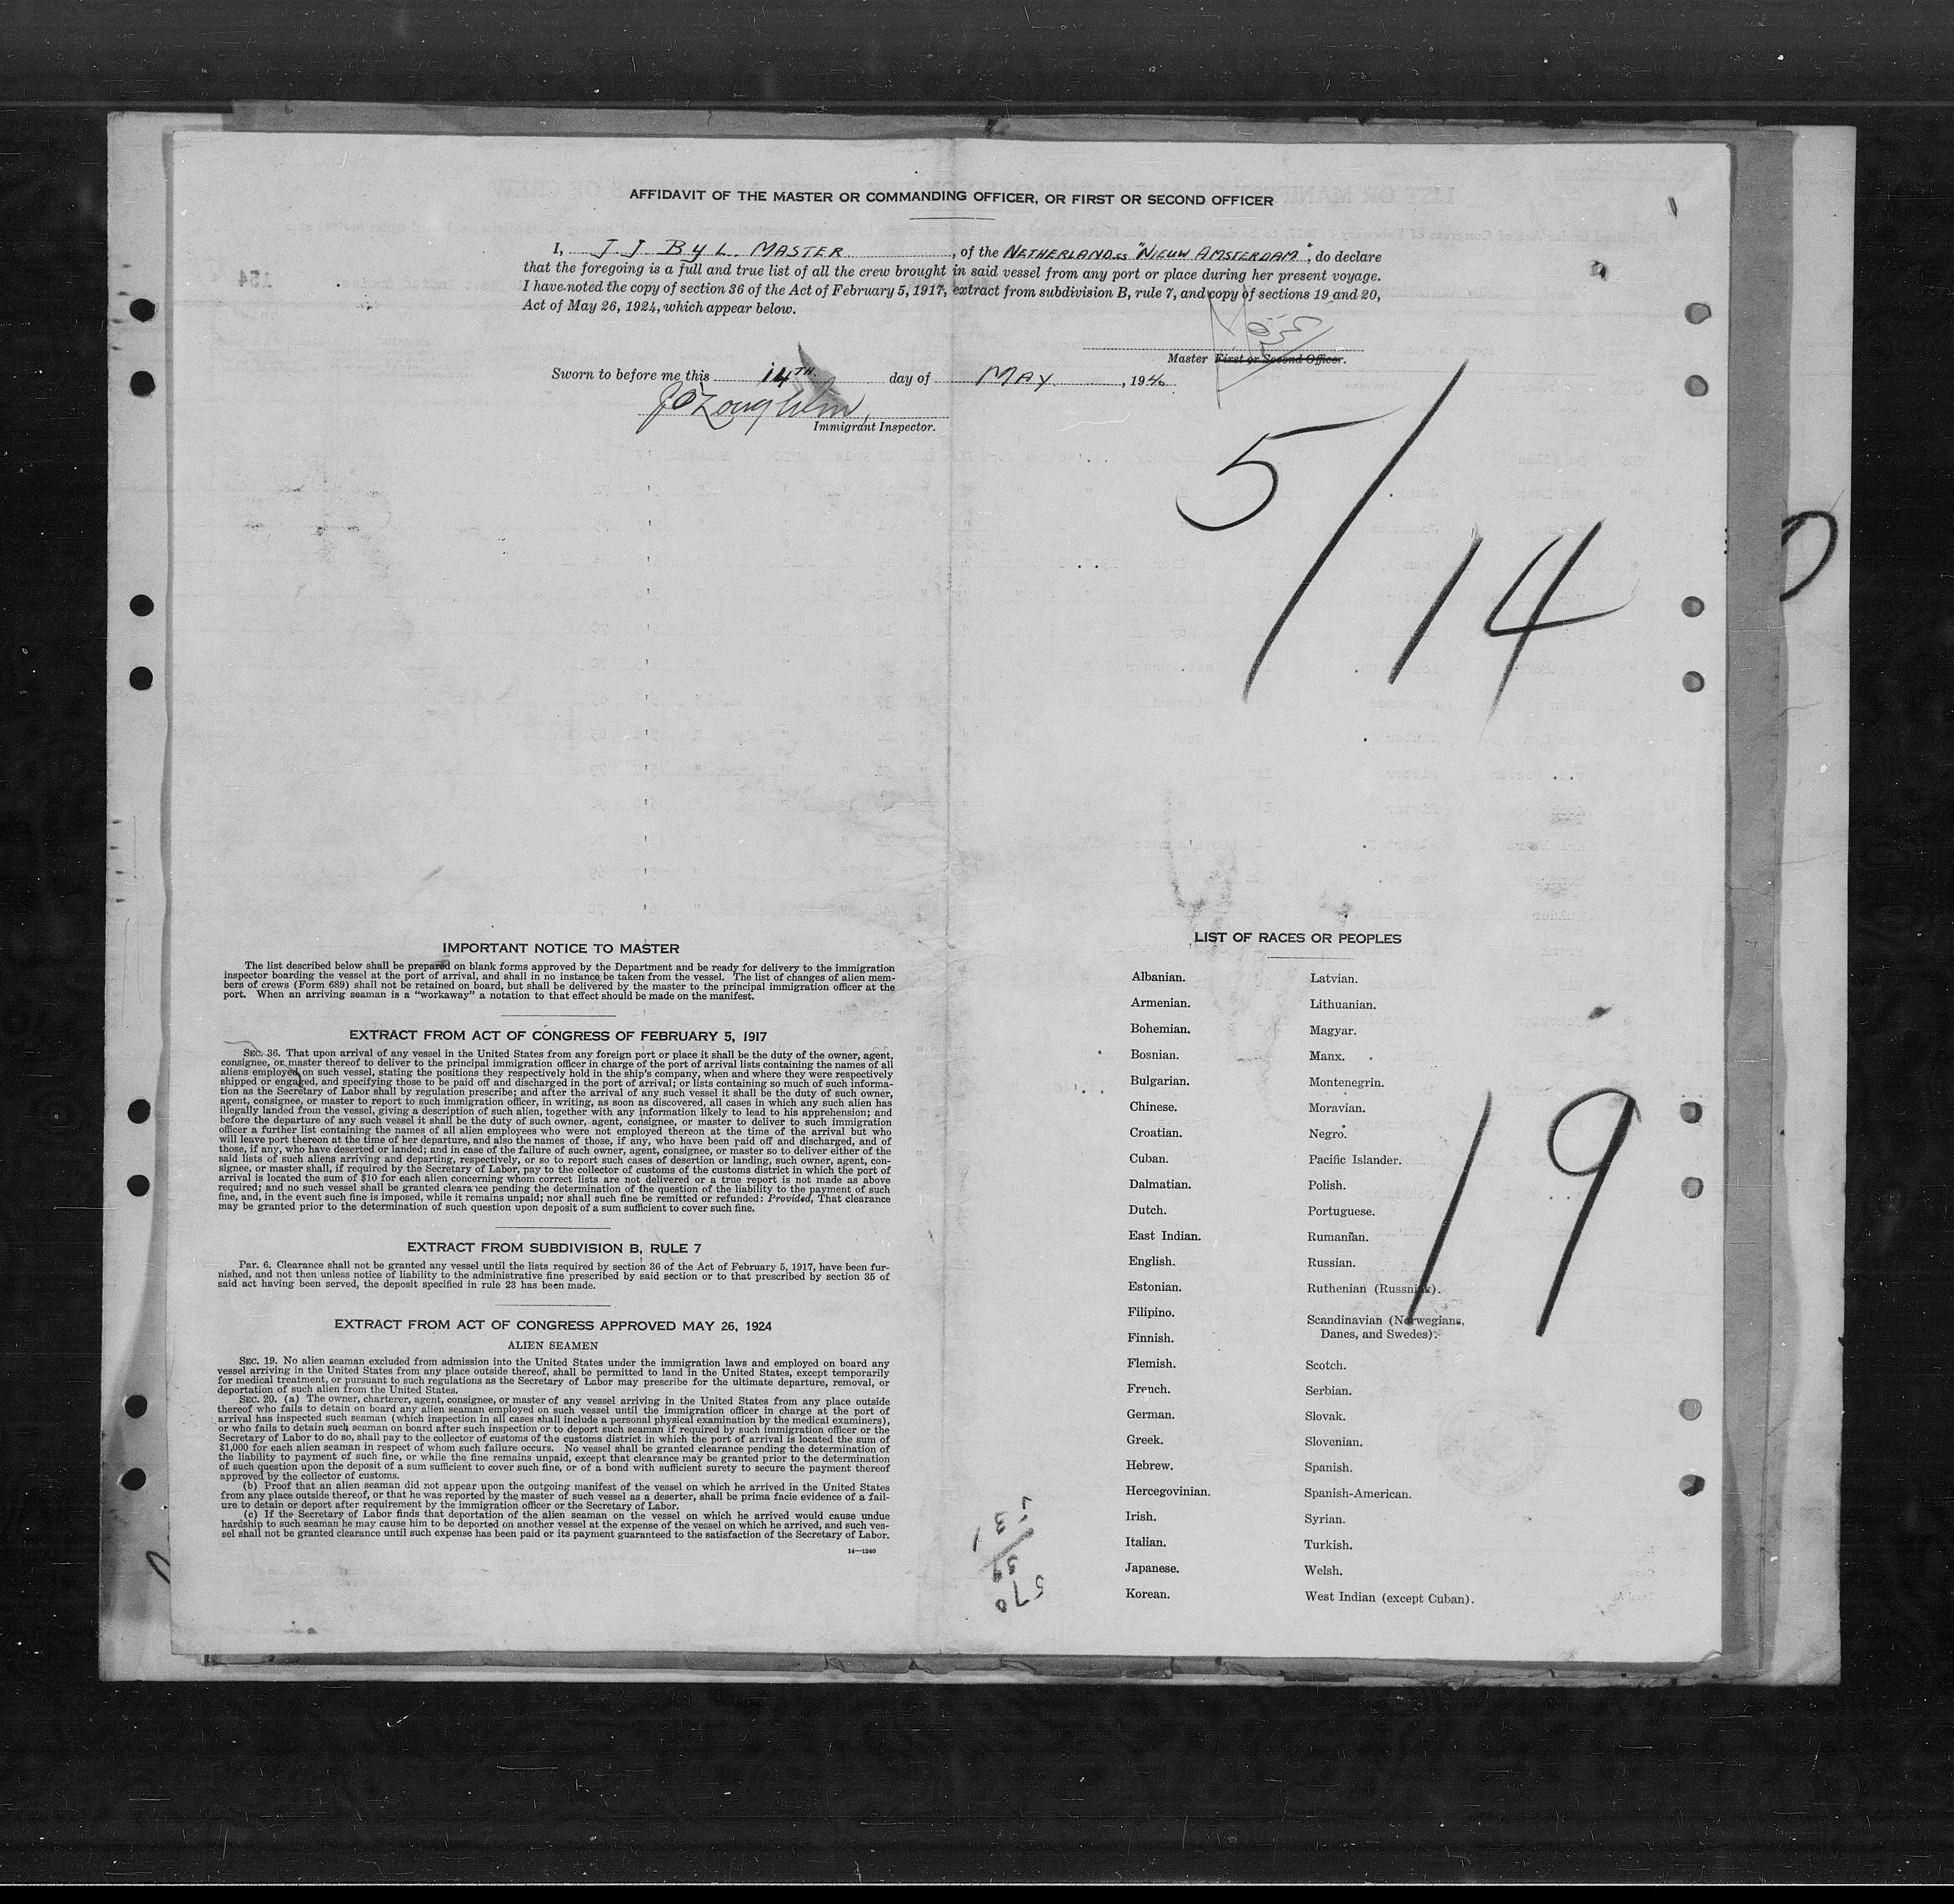 AFFIDAVIT OF THE MASTER OR COMMANDING OFFICER, OR FIRST OR SECOND OFFICER
I, J. J. BYL. MASTER, of the NETHERLAND SS "NIEUW AMSTERDAM", do declare
that the foregoing is a full and true list of all the crew brought in said vessel from any port or place during her present voyage.
I have noted the copy of section 36 of the Act of February 5, 1917, extract from subdivision B, rule 7, and copy of sections 19 and 20,
Act of May 26, 1924, which appear below.
Master First or Second Officer.
Sworn to before me this 14TH day of MAY, 1940
Immigrant Inspector.
5/14
IMPORTANT NOTICE TO MASTER
The list described below shall be prepared on blank forms approved by the Department and be ready for delivery to the immigration
inspector boarding the vessel at the port of arrival, and shall in no instance be taken from the vessel. The list of changes of alien mem-
bers of crews (Form 689) shall not be retained on board, but shall be delivered by the master to the principal immigration officer at the
port. When an arriving seaman is a "workaway" a notation to that effect should be made on the manifest.
EXTRACT FROM ACT OF CONGRESS OF FEBRUARY 5, 1917
SEC. 36. That upon arrival of any vessel in the United States from any foreign port or place it shall be the duty of the owner, agent,
consignee, or master thereof to deliver to the principal immigration officer in charge of the port of arrival lists containing the names of all
aliens employed on such vessel, stating the positions they respectively hold in the ship's company, when and where they were respectively
shipped or engaged, and specifying those to be paid off and discharged in the port of arrival; or lists containing so much of such informa-
tion as the Secretary of Labor shall by regulation prescribe; and after the arrival of any such vessel it shall be the duty of such owner,
agent, consignee, or master to report to such immigration officer, in writing, as soon as discovered, all cases in which any such alien has
illegally landed from the vessel, giving a description of such alien, together with any information likely to lead to his apprehension; and
before the departure of any such vessel it shall be the duty of such owner, agent, consignee, or master to deliver to such immigration
officer a further list containing the names of all alien employees who were not employed thereon at the time of the arrival but who
will leave port thereon at the time of her departure, and also the names of those, if any, who have been paid off and discharged, and of
those, if any, who have deserted or landed; and in case of the failure of such owner, agent, consignee, or master so to deliver either of the
said lists of such aliens arriving and departing, respectively, or so to report such cases of desertion or landing, such owner, agent, con-
signee, or master shall, if required by the Secretary of Labor, pay to the collector of customs of the customs district in which the port of
arrival is located the sum of $10 for each alien concerning whom correct lists are not delivered or a true report is not made as above
required; and no such vessel shall be granted clearance pending the determination of the question of the liability to the payment of such
fine, and, in the event such fine is imposed, while it remains unpaid; nor shall such fine be remitted or refunded: Provided, That clearance
may be granted prior to the determination of such question upon deposit of a sum sufficient to cover such fine.
EXTRACT FROM SUBDIVISION B, RULE 7
PAR. 6. Clearance shall not be granted any vessel until the lists required by section 36 of the Act of February 5, 1917, have been fur-
nished, and not then unless notice of liability to the administrative fine prescribed by said section or to that prescribed by section 35 of
said act having been served, the deposit specified in rule 23 has been made.
EXTRACT FROM ACT OF CONGRESS APPROVED MAY 26, 1924
ALIEN SEAMEN
SEC. 19. No alien seaman excluded from admission into the United States under the immigration laws and employed on board any
vessel arriving in the United States from any place outside thereof, shall be permitted to land in the United States, except temporarily
for medical treatment, or pursuant to such regulations as the Secretary of Labor may prescribe for the ultimate departure, removal, or
deportation of such alien from the United States.
SEC. 20. (a) The owner, charterer, agent, consignee, or master of any vessel arriving in the United States from any place outside
thereof who fails to detain on board any alien seaman employed on such vessel until the immigration officer in charge at the port of
arrival has inspected such seaman (which inspection in all cases shall include a personal physical examination by the medical examiners),
or who fails to detain such seaman on board after such inspection or to deport such seaman if required by such immigration officer or the
Secretary of Labor to do so, shall pay to the collector of customs of the customs district in which the port of arrival is located the sum of
$1,000 for each alien seaman in respect of whom such failure occurs. No vessel shall be granted clearance pending the determination of
the liability to payment of such fine, or while the fine remains unpaid, except that clearance may be granted prior to the determination
of such question upon the deposit of a sum sufficient to cover such fine, or of a bond with sufficient surety to secure the payment thereof
approved by the collector of customs.
(b) Proof that an alien seaman did not appear upon the outgoing manifest of the vessel on which he arrived in the United States
from any place outside thereof, or that he was reported by the master of such vessel as a deserter, shall be prima facie evidence of a fail-
ure to detain or deport after requirement by the immigration officer or the Secretary of Labor.
(c) If the Secretary of Labor finds that deportation of the alien seaman on the vessel on which he arrived would cause undue
hardship to such seaman he may cause him to be deported on another vessel at the expense of the vessel on which he arrived, and such ves-
sel shall not be granted clearance until such expense has been paid or its payment guaranteed to the satisfaction of the Secretary of Labor.
14—1240
LIST OF RACES OR PEOPLES
Albanian.
Armenian.
Bohemian.
Bosnian.
Bulgarian.
Chinese.
Croatian.
Cuban.
Dalmatian.
Dutch.
East Indian.
English.
Estonian.
Filipino.
Finnish.
Flemish.
French.
German.
Greek.
Hebrew.
Hercegovinian.
Irish.
Italian.
Japanese.
Korean.
Latvian.
Lithuanian.
Magyar.
Manx.
Montenegrin.
Moravian.
Negro.
Pacific Islander.
Polish.
Portuguese.
Rumanian.
Russian.
Ruthenian (Russniak).
Scandinavian (Norwegians,
Danes, and Swedes).
Scotch.
Serbian.
Slovak.
Slovenian.
Spanish.
Spanish-American.
Syrian.
Turkish.
Welsh.
West Indian (except Cuban).
19